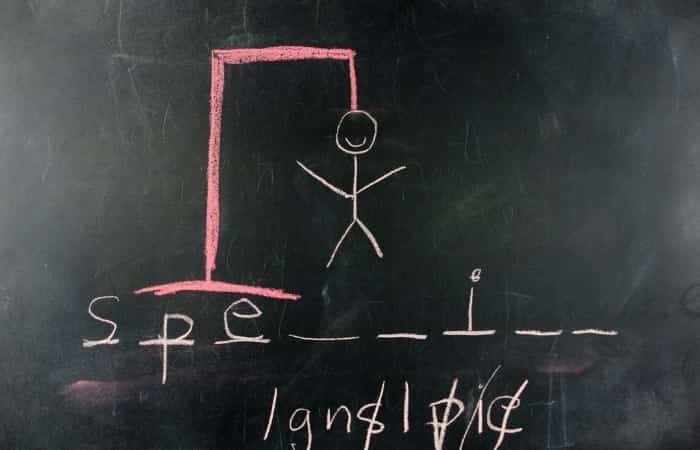 s p e _ _ i _ _
l g n s l p i e